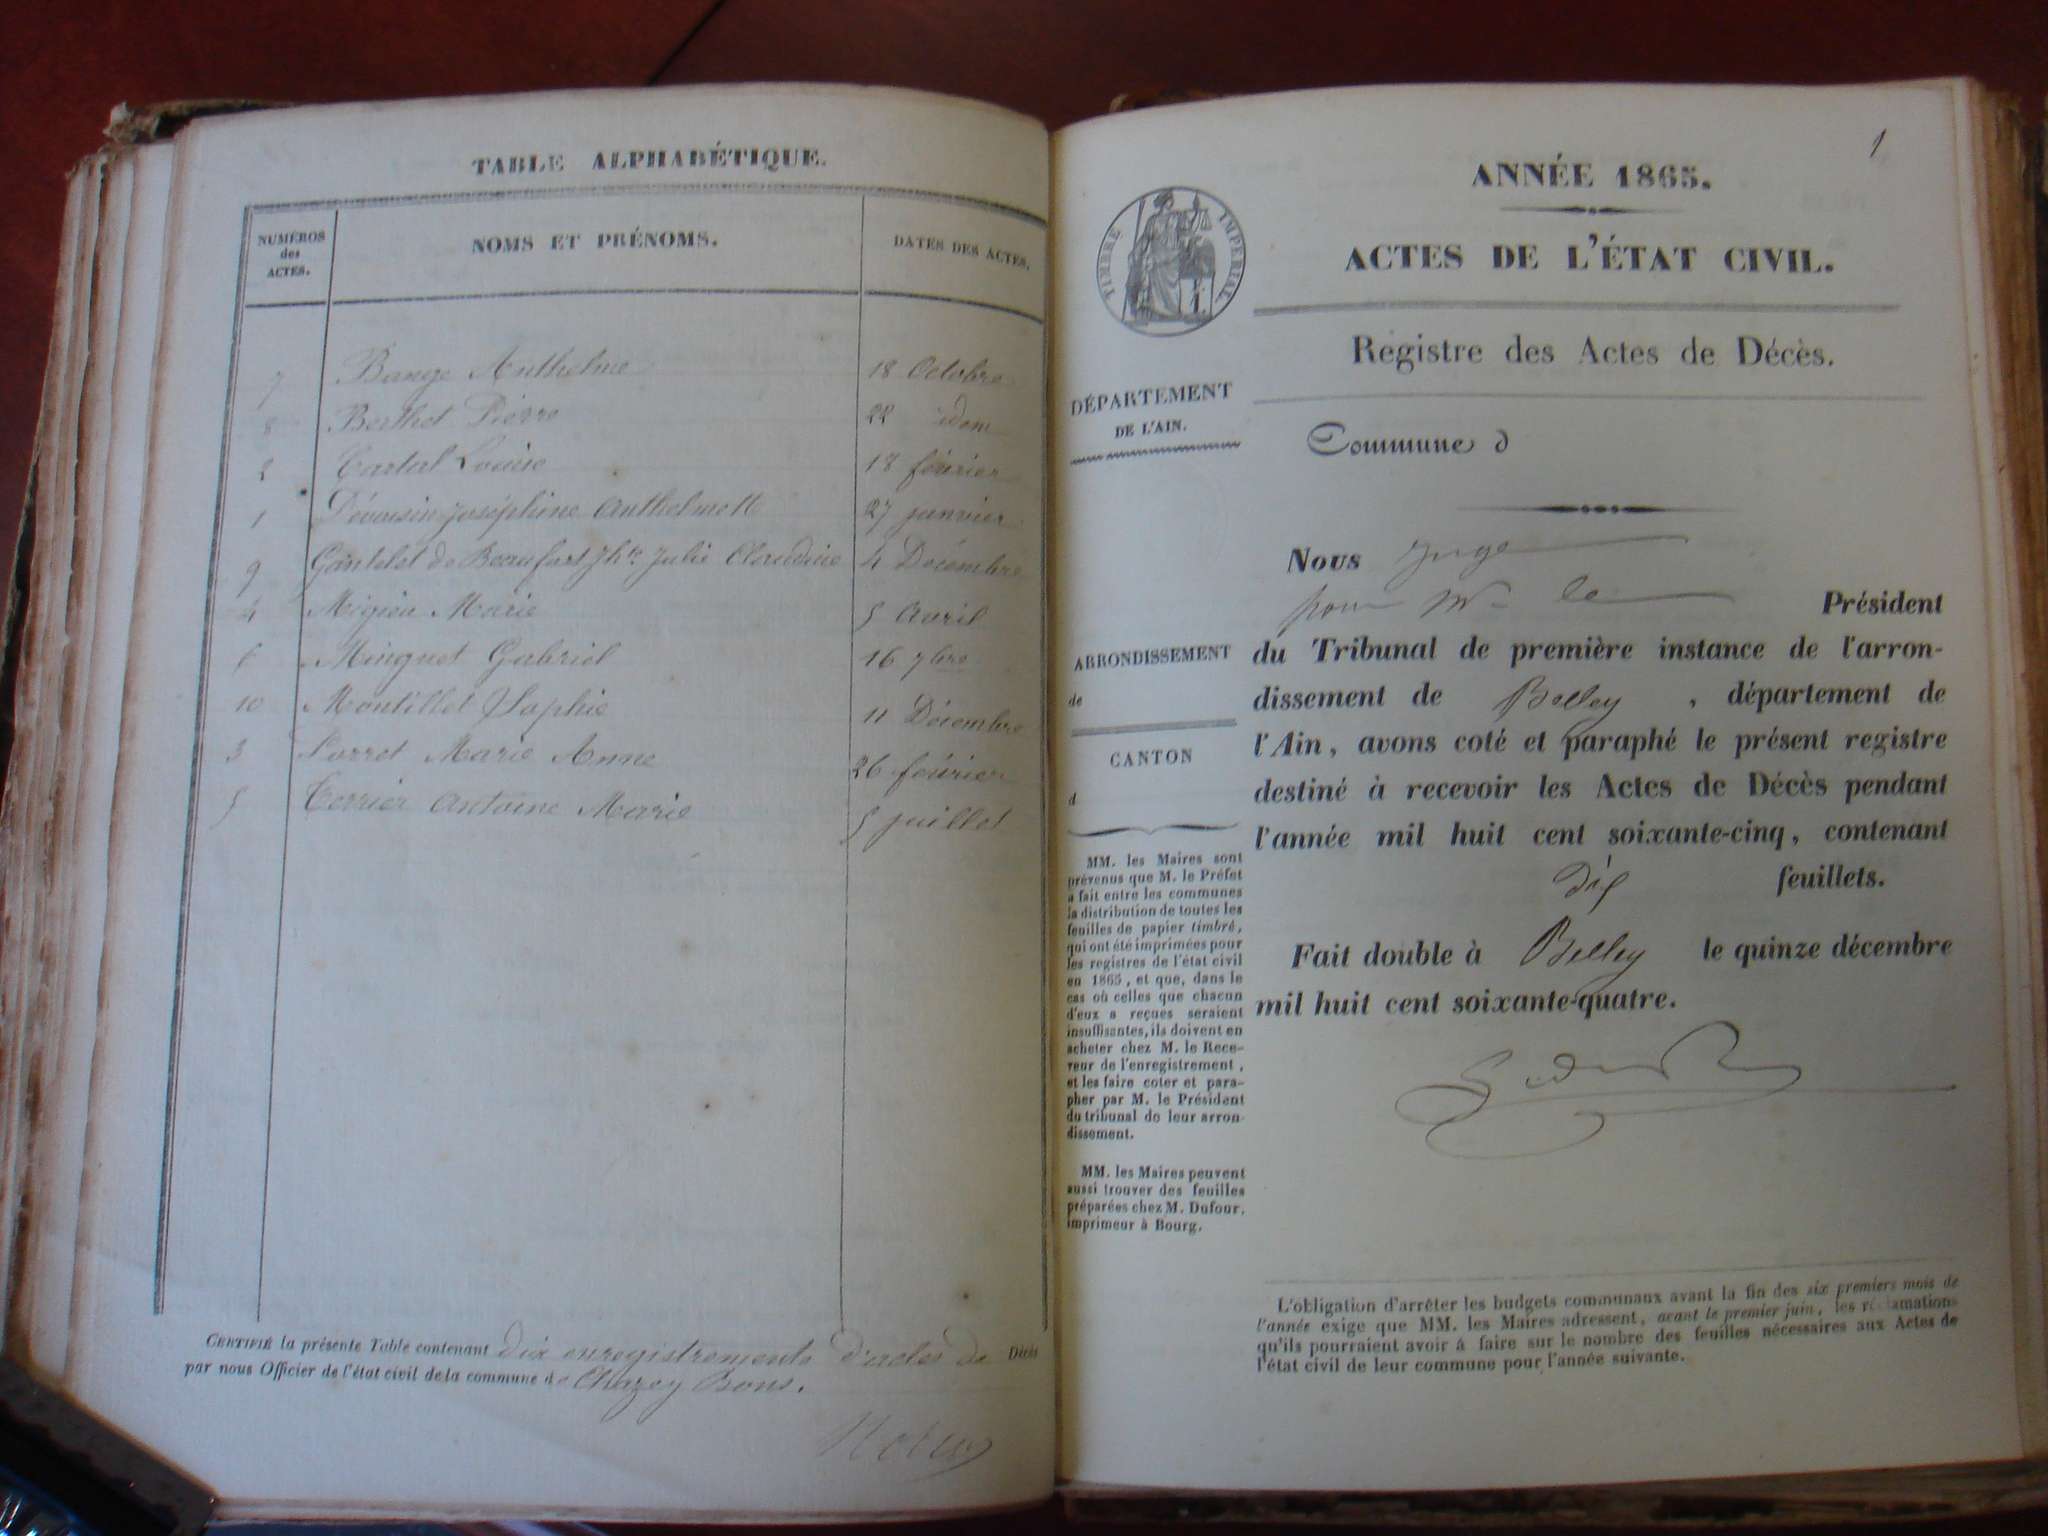 TABLE ALPHABÉTIQUE.
NUMÉROS des ACTES.
NOMS ET PRÉNOMS.
DATES DES ACTES.
7 Bange Anthelme 18 Octobre
8 Berthet Pierre 22 idem
2 Cartal Louise 18 février
1 Dévoisin Joséphine Anthelmette 27 janvier
9 Gantelet de Beaufort Jhte Julie Claudine 4 Décembre
4 Migieu Marie 5 Avril
6 Minguet Gabriel 16 7bre
10 Montillet Sophie 11 Décembre
3 Porret Marie Anne 26 février
5 Terrier Antoine Marie 5 juillet
CERTIFIÉ la présente Table contenant dix enregistrements d'actes de Décès
par nous Officier de l'état civil de la commune de Chazey Bons.
1
ANNÉE 1865.
TIMBRE IMPÉRIAL
ACTES DE L'ÉTAT CIVIL.
Registre des Actes de Décès.
DÉPARTEMENT
DE L'AIN.
Commune d
ARRONDISSEMENT
de
CANTON
d
MM. les Maires sont
prévenus que M. le Préfet
a fait entre les communes
la distribution de toutes les
feuilles de papier timbré,
qui ont été imprimées pour
les registres de l'état civil
en 1865, et que, dans le
cas où celles que chacun
d'eux a reçues seraient
insuffisantes, ils doivent en
acheter chez M. le Rece-
veur de l'enregistrement,
et les faire coter et para-
pher par M. le Président
du tribunal de leur arron-
dissement.
MM. les Maires peuvent
aussi trouver des feuilles
préparées chez M. Dufour,
imprimeur à Bourg.
Nous Juge
pour Mr le Président
du Tribunal de première instance de l'arron-
dissement de Belley, département de
l'Ain, avons coté et paraphé le présent registre
destiné à recevoir les Actes de Décès pendant
l'année mil huit cent soixante-cinq, contenant
dix feuillets.
Fait double à Belley le quinze décembre
mil huit cent soixante-quatre.
L'obligation d'arrêter les budgets communaux avant la fin des six premiers mois de
l'année exige que MM. les Maires adressent, avant le premier juin, les réclamations
qu'ils pourraient avoir à faire sur le nombre des feuilles nécessaires aux Actes de
l'état civil de leur commune pour l'année suivante.